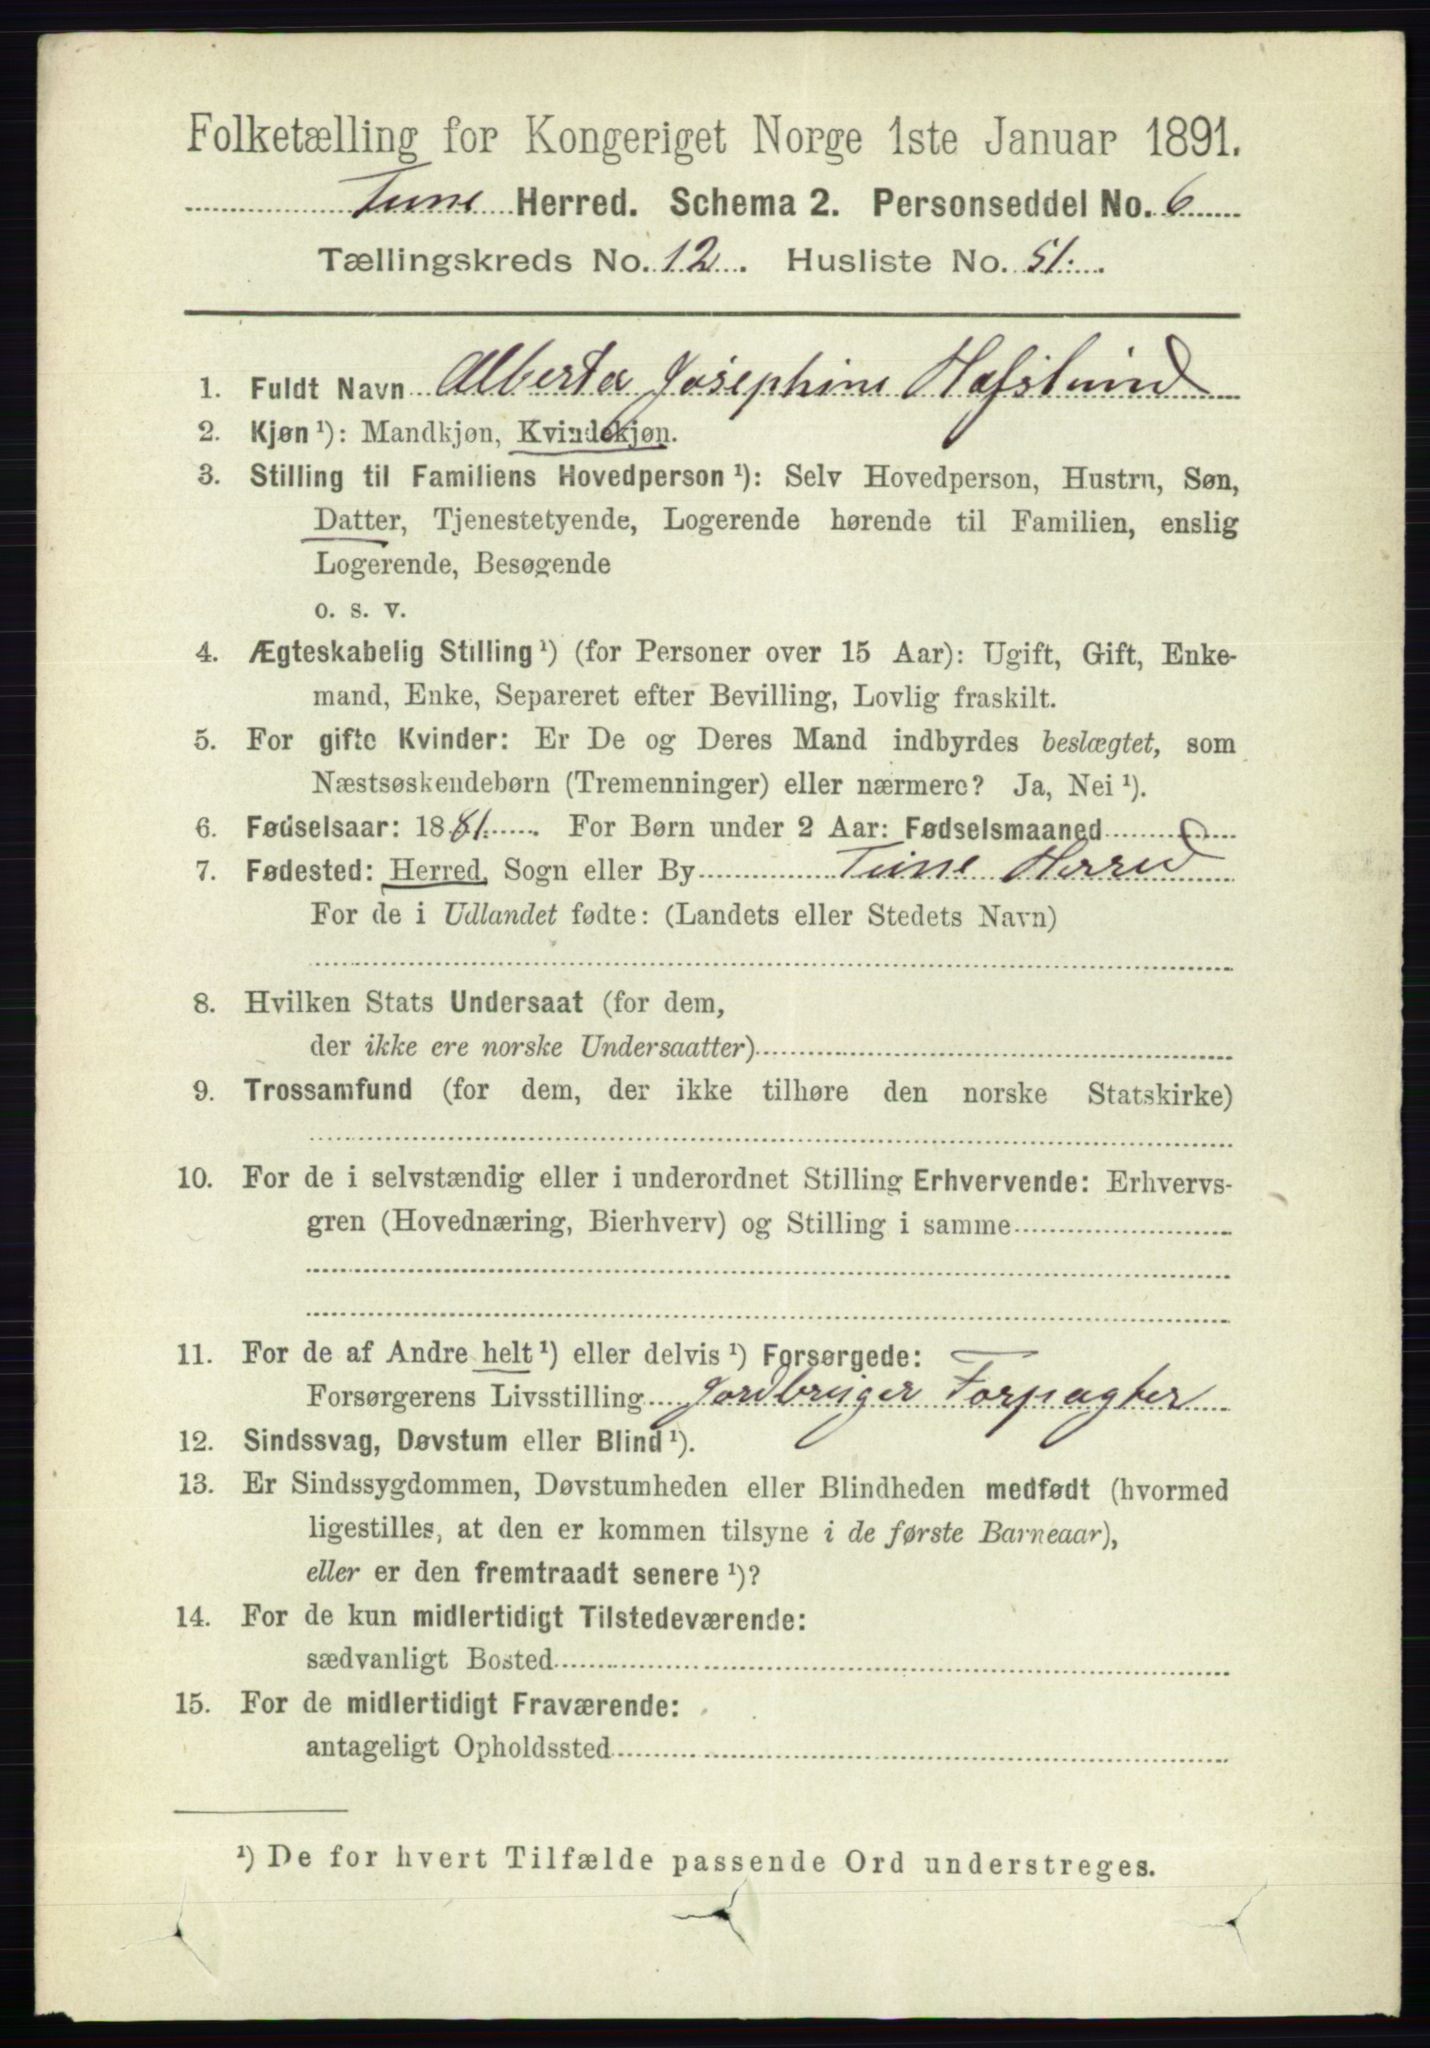 Folketælling for Kongeriget Norge 1ste Januar 1891.
Tune Herred. Schema 2. Personseddel No. 6
Tællingskreds No. 12. Husliste No. 51.
1. Fuldt Navn Alberta Josephine Hafslund
2. Kjøn ¹): Mandkjøn, Kvindekjøn.
3. Stilling til Familiens Hovedperson ¹): Selv Hovedperson, Hustru, Søn,
Datter, Tjenestetyende, Logerende hørende til Familien, enslig
Logerende, Besøgende
o. s. v.
4. Ægteskabelig Stilling ¹) (for Personer over 15 Aar): Ugift, Gift, Enke-
mand, Enke, Separeret efter Bevilling, Lovlig fraskilt.
5. For gifte Kvinder: Er De og Deres Mand indbyrdes beslægtet, som
Næstsøskendebørn (Tremenninger) eller nærmere? Ja, Nei ¹).
6. Fødselsaar: 1881. For Børn under 2 Aar: Fødselsmaaned
7. Fødested: Herred, Sogn eller By Tune Herred
For de i Udlandet fødte: (Landets eller Stedets Navn)
8. Hvilken Stats Undersaat (for dem,
der ikke ere norske Undersaatter)
9. Trossamfund (for dem, der ikke tilhøre den norske Statskirke)
10. For de i selvstændig eller i underordnet Stilling Erhvervende: Erhvervs-
gren (Hovednæring, Bierhverv) og Stilling i samme
11. For de af Andre helt ¹) eller delvis ¹) Forsørgede:
Forsørgerens Livsstilling Jordbruger Forpagter
12. Sindssvag, Døvstum eller Blind ¹).
13. Er Sindssygdommen, Døvstumheden eller Blindheden medfødt (hvormed
ligestilles, at den er kommen tilsyne i de første Barneaar),
eller er den fremtraadt senere ¹)?
14. For de kun midlertidigt Tilstedeværende:
sædvanligt Bosted
15. For de midlertidigt Fraværende:
antageligt Opholdssted
¹) De for hvert Tilfælde passende Ord understreges.